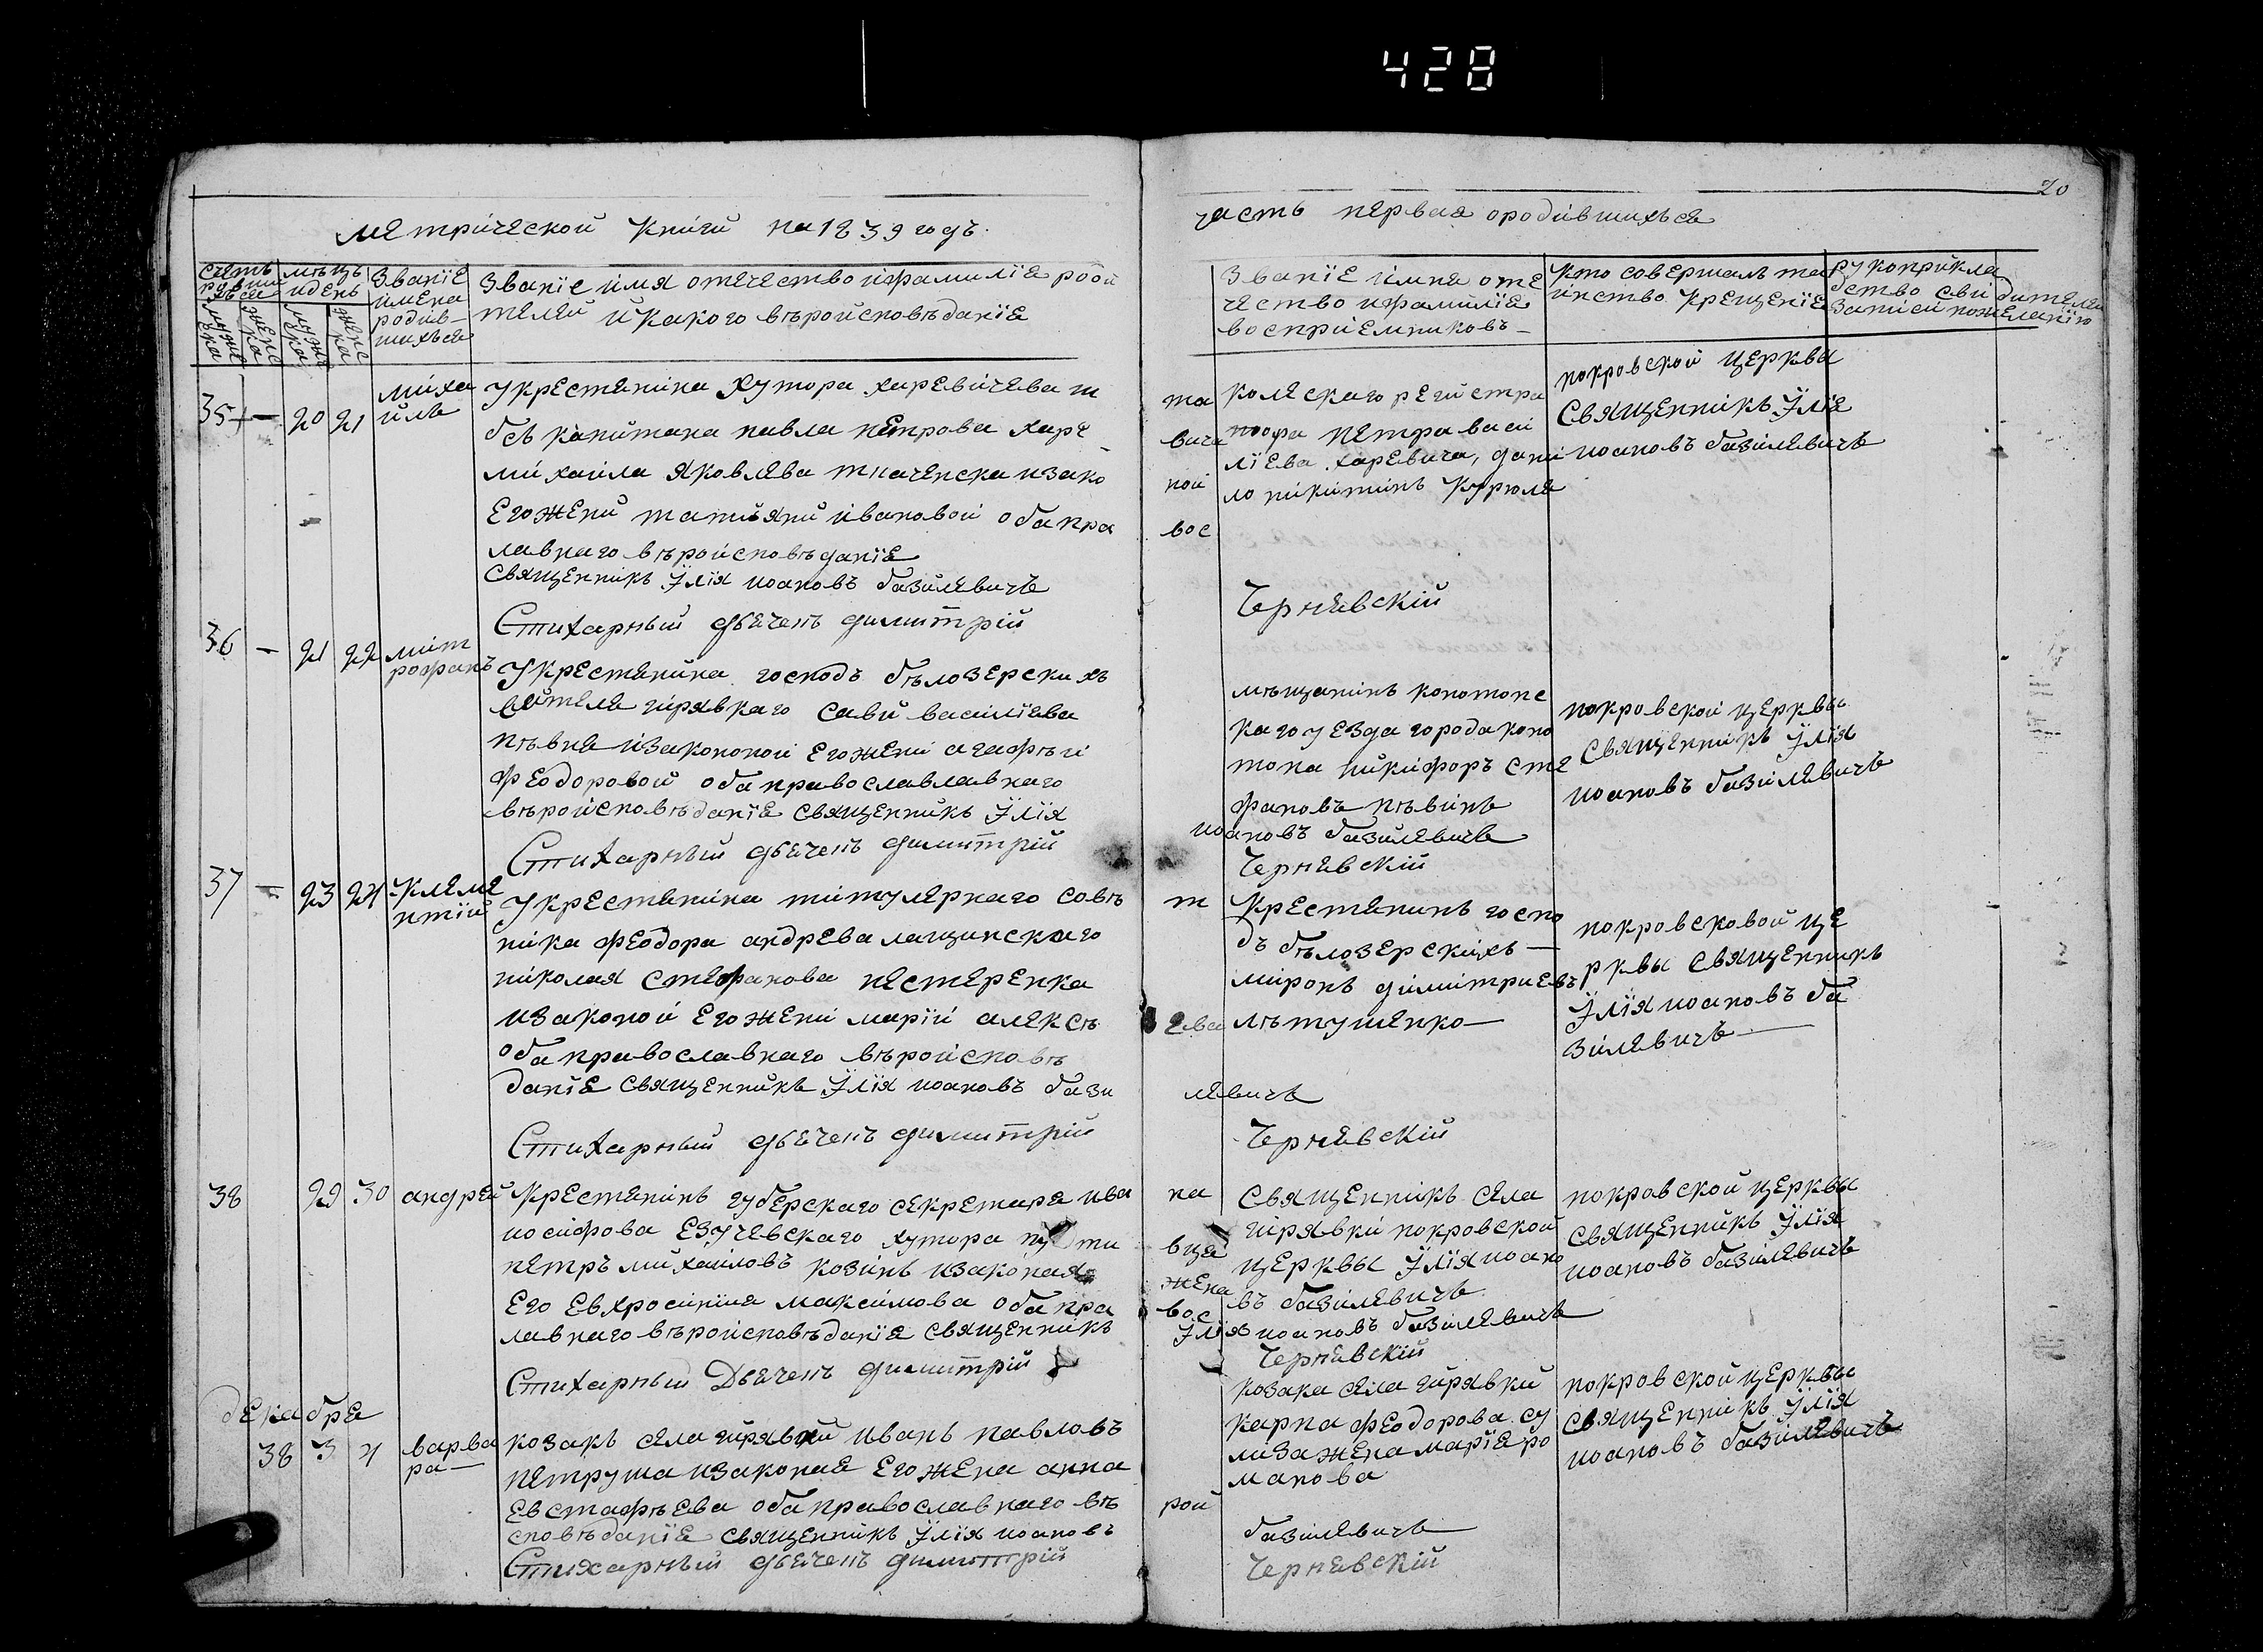 428
20
метрической книги на 1839 годъ.
часть первая ородившихъся
счетъ родившихъся
мѣцъ иденъ
Званїе имена родив-шихъся
Званїе имя отечество ифамилїя роди
телей икакого вѣроисповѣданїя
мужеска
женска
мужеска
женска
Званїе имня оте
чество ифамилїя
восприемниковъ
Кто совершалъ та
инство крещенїе
рукоприкла
дство свидителей
записи пожеланїю
35 — 20 21 миха
илъ
Укрестянина хутора харевичева шта
бсъ капитана павла петрова харевича
михаила яковлева ткаченска изаконой
Его жени татияни ивановой оба правос
лавнаго вѣроисповѣданїя
Священникъ Їлїя иоановъ базилевичъ
Стихарный дьяченъ димитрій Чернявскій
колескаго регистра
тора петра васи
лїева харевича, дани
ло никитинъ курюля
покровской церквы
Священникъ Їлїя
иоановъ базилевичъ
36 — 21 22 мит
рофанъ
Укрестянина господъ бѣлозерскихъ
жителя гирявкаго сави василїева
пѣвня изакononой его жени агафѣи
Феодоровой оба православлавнаго
вѣроисповѣданїя священникъ Їлїя иоановъ базилевичъ
Стихарный дьяченъ димитрій Чернявскій
мѣщанинъ конотопс
каго уезда города коно
топа никифоръ сте
фановъ пѣвинъ
покровской церквы
Священникъ Їлїя
иоановъ базилевичъ
37 — 23 24 Клеме
нтїй
Укрестянина титулярнаго совѣт
ника феодора андрева лащинскаго
николая стефанова нестеренка
изаконой его жени марїй алексѣева
оба православнаго вѣроисповѣ
данїя священникъ Їлїя иоановъ базилевичъ
Стихарный дьяченъ димитрій Чернявскій
Крестянинъ госпо
дъ бѣлозерскихъ —
миронъ димитриевъ
мѣтушенко —
покровсковой це
рквы священникъ
Їлїя иоановъ ба
зилевичъ —
38 29 30 андрей
Крестянинъ губерскаго секретаря ивана
иосифова Езучевскаго хутора
петръ михаиловъ козинъ изаконая жена
Его Евхросинїия максимова оба правос
лавнаго вѣроисповѣданїя священникъ Їлїя иоановъ базилевичъ
Стихарный Дьяченъ димитрій Чернявскій
Священникъ села
гирявки покровской
церквы Їлїя иоано
въ базилевичъ
покровской церквы
священникъ Їлїя
иоановъ базилевичъ
декабря
38 3 4 варва
ра —
козакъ села гирявки иванъ павловъ
петруша изаконая его жена анна
Евстафѣева оба православнаго вѣрои
сповѣданїя священникъ Їлїя иоановъ базилевичъ
Стихарный дьяченъ димитрій Чернявскій
козака села гирявки
карпа феодорова су
лиза жена марїя ро
манова
покровской церквы
священникъ Їлїя
иоановъ базилевичъ